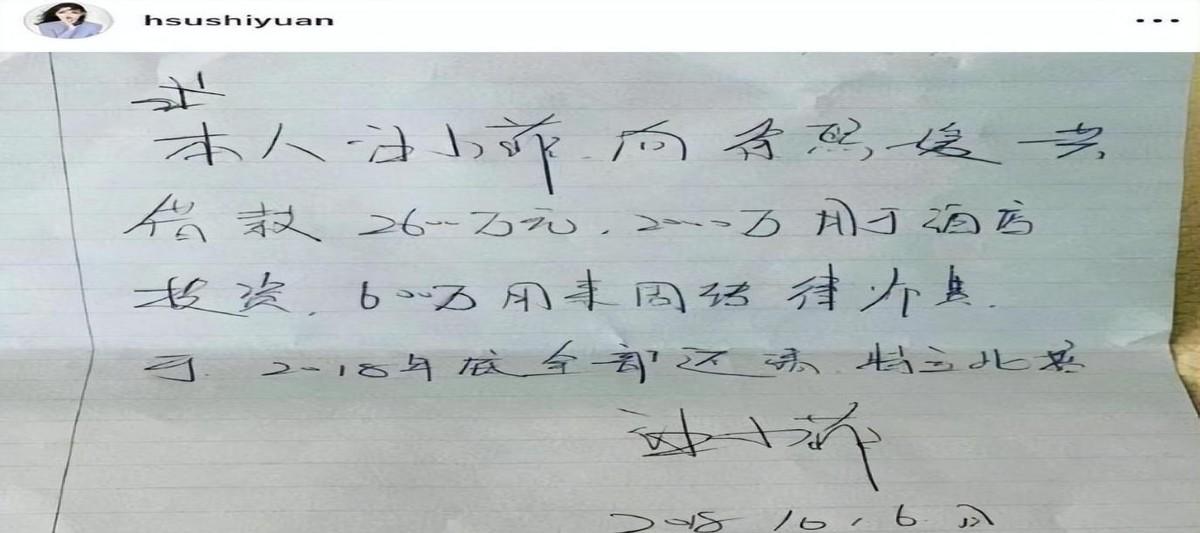 hsushiyuan
本人汪小菲向徐熙媛共
借款2600万元.2000万用于酒店
投资.600万用来周转
于2018年底全部还 特立此据
汪小菲
2018.10.6